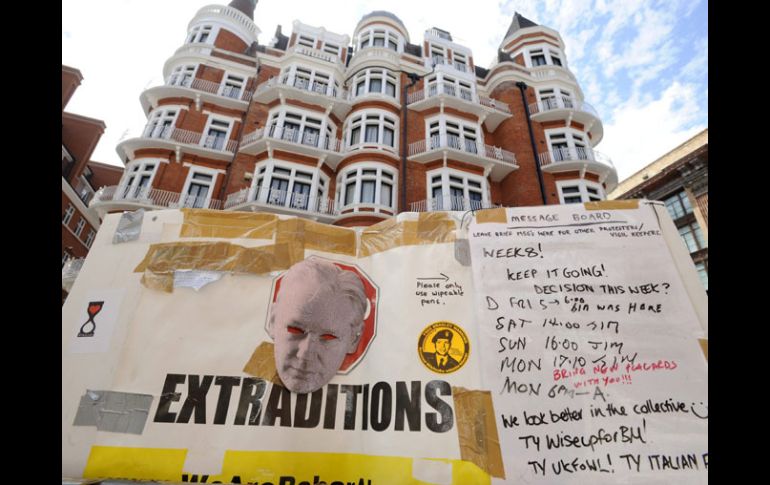 MESSAGE BOARD
LEAVE BRIEF MSG'S HERE FOR OTHER PROTESTERS/
VIGIL KEEPERS.
WEEK 8!
KEEP IT GOING!
DECISION THIS WEEK?
FRI 5 - 6:00
WAS HERE
SAT 14:00 JIM
SUN 16:00 JIM
MON 17.10 JIM
BRING NEW PLACARDS
WITH YOU!!!
MON 6PM - A
We look better in the collective
TY WISEUPforBM!
TY UKFOWL! TY ITALIAN
→
Please
only
use wipeable
pens.
EXTRADITIONS
We Are